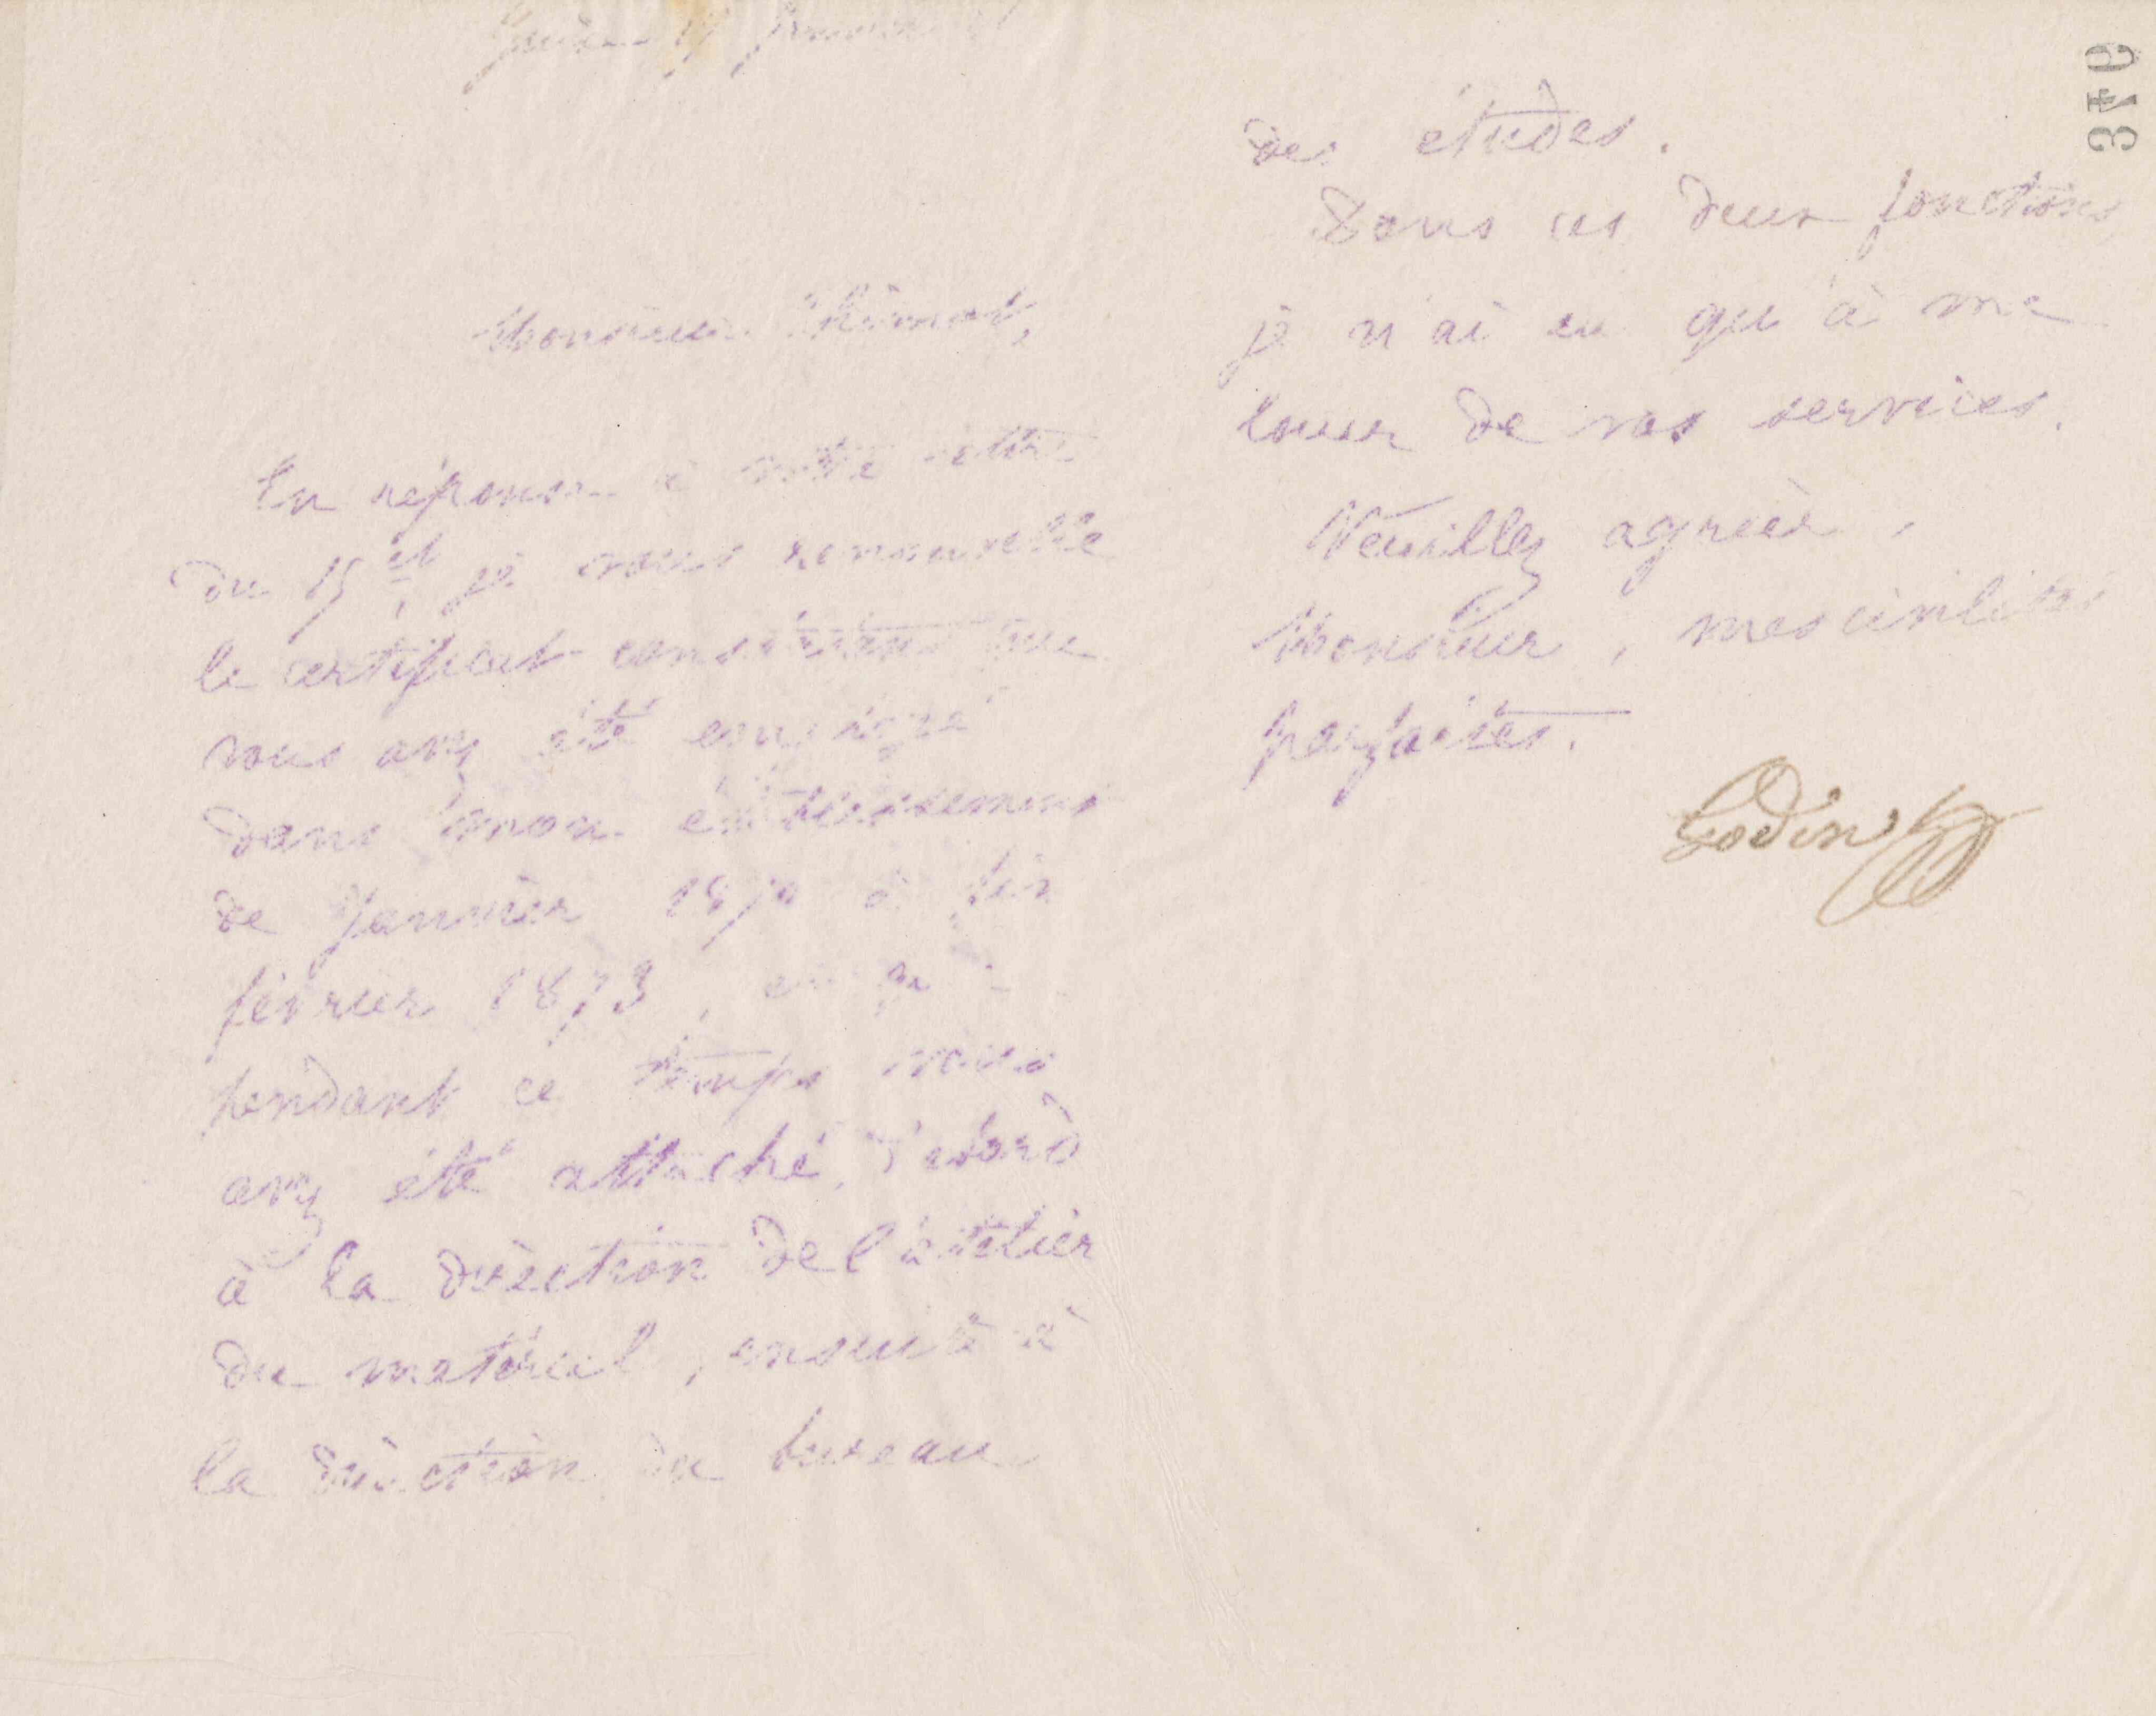 Monsieur
En réponse à votre lettre
du 15 ct, je vous renouvelle
le certificat constatant que
vous avez été employé
dans mon établissement
de Janvier 1870 à fin
février 1873,
pendant ce temps vous
avez été attaché, d'abord
à la direction de l'atelier
du matériel, ensuite à
la direction du bureau
des études.
Dans ces deux fonctions
je n'ai eu qu'à me
louer de vos services.
Veuillez agréer,
Monsieur, mes civilités
parfaites.
Godin
346